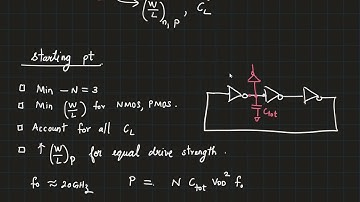 (W/L)n, P , CL
starting pt
Min – N = 3
Min (W/L) for NMOS, PMOS.
Account for all CL
↑ (W/L)P for equal drive strength.
f0 ≈ 20GHz P = N Ctot VDD² f0
Ctot